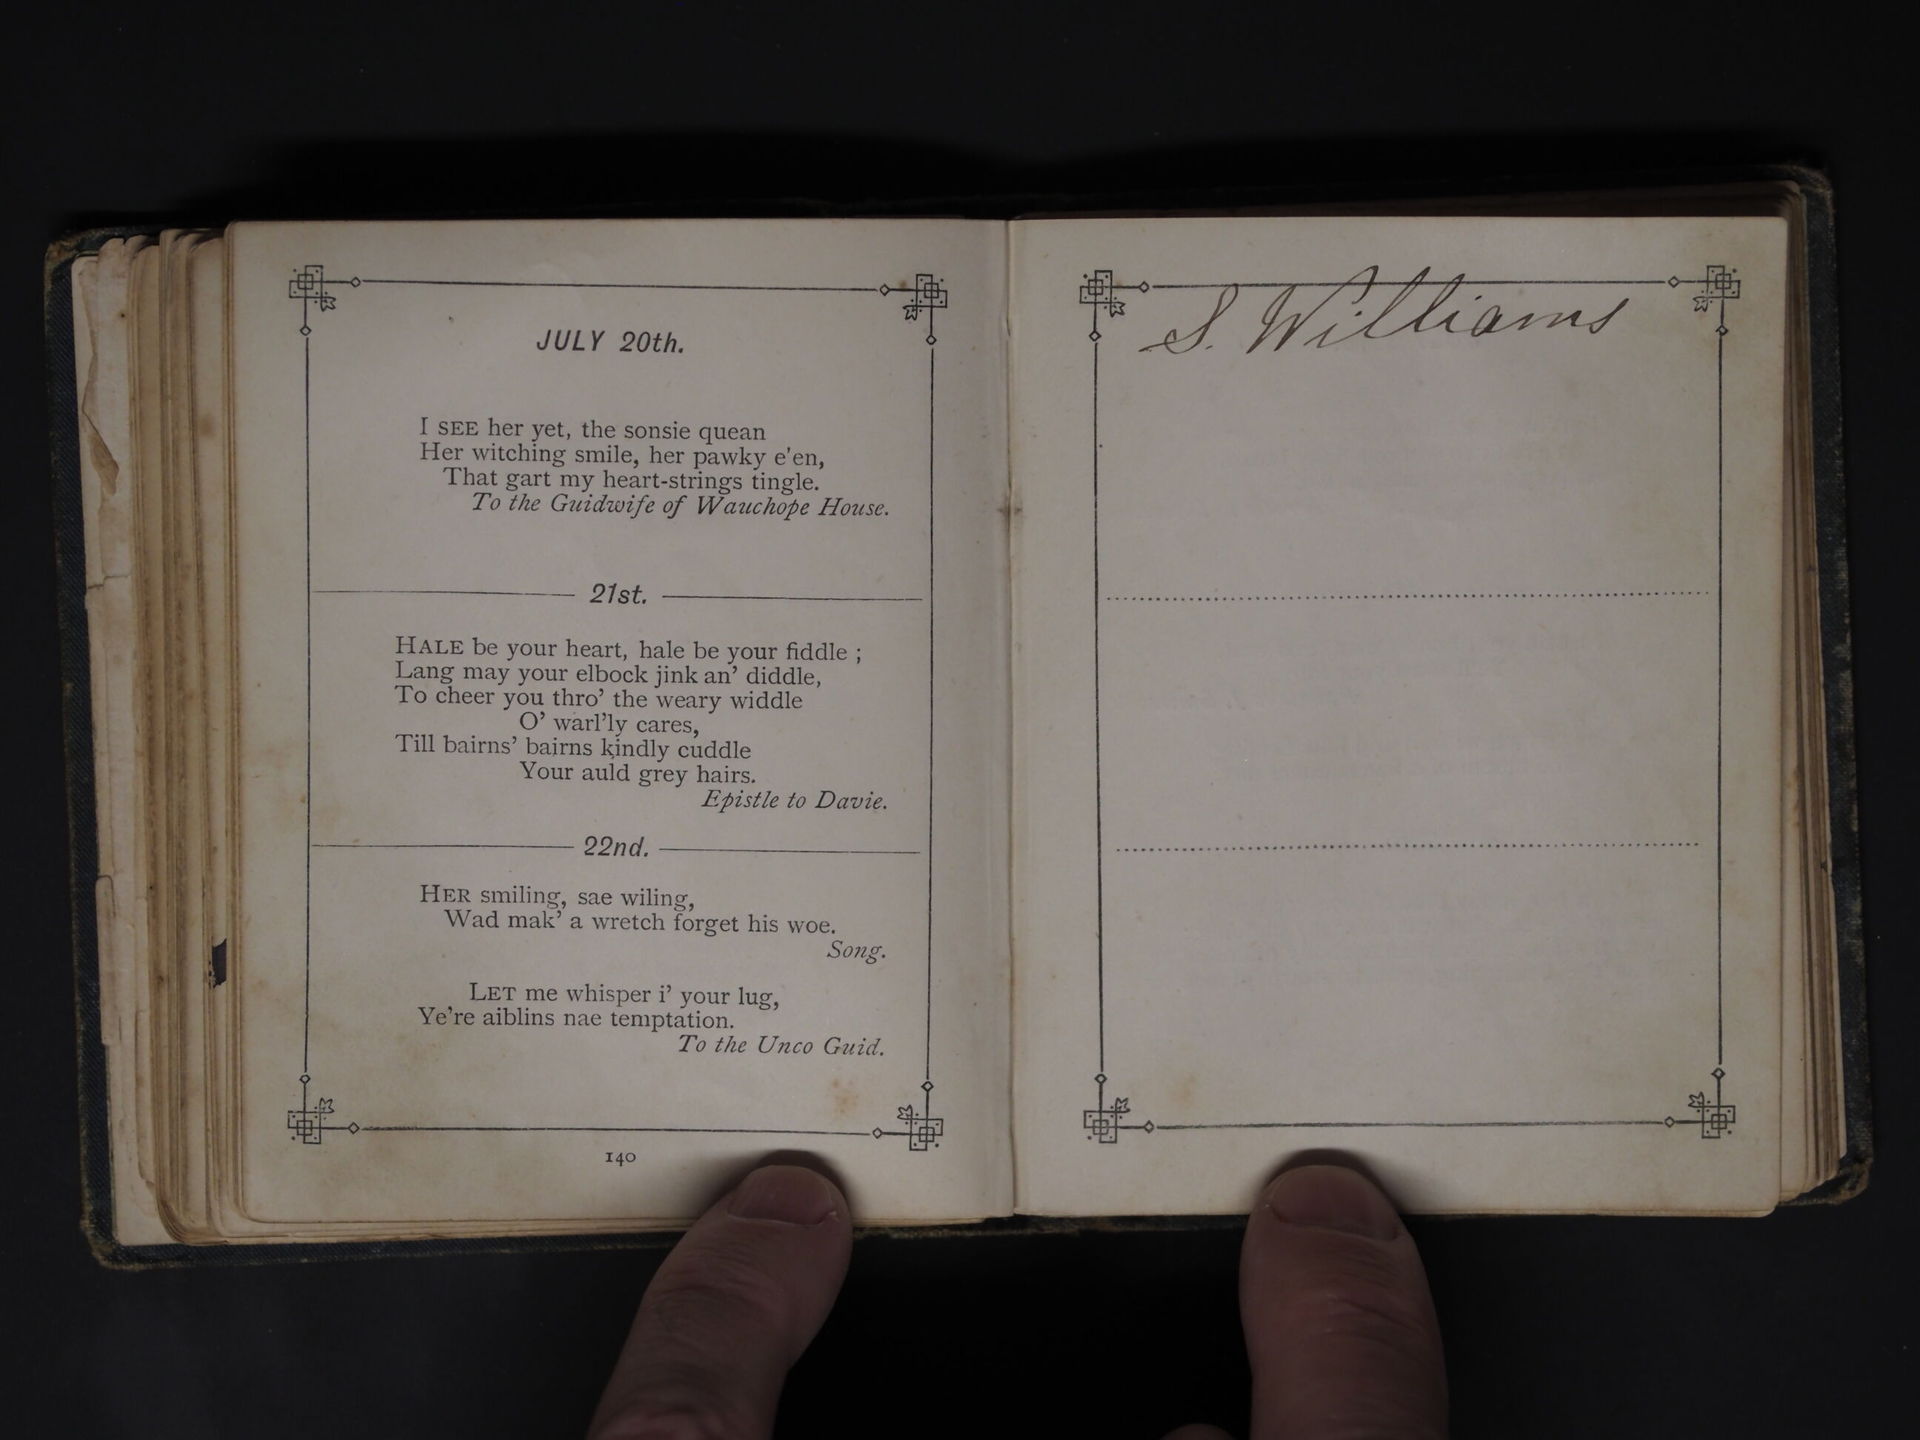 JULY 20th.
I SEE her yet, the sonsie quean
Her witching smile, her pawky e'en,
That gart my heart-strings tingle.
To the Guidwife of Wauchope House.
21st.
HALE be your heart, hale be your fiddle ;
Lang may your elbock jink an' diddle,
To cheer you thro' the weary widdle
O' warl'ly cares,
Till bairns' bairns kindly cuddle
Your auld grey hairs.
Epistle to Davie.
22nd.
HER smiling, sae wiling,
Wad mak' a wretch forget his woe.
Song.
LET me whisper i' your lug,
Ye're aiblins nae temptation.
To the Unco Guid.
140
S. Williams